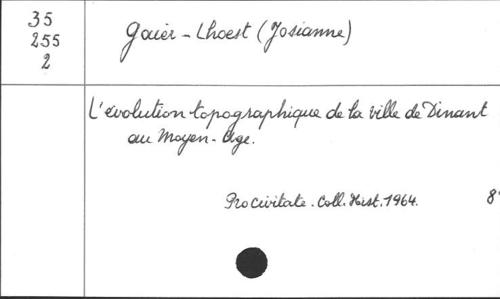 35
255
2
Gaier-Lhoest (Josianne)
L'évolution topographique de la ville de Dinant
au Moyen-Age.
Pro Civitate. Coll. Hist. 1964.
8°